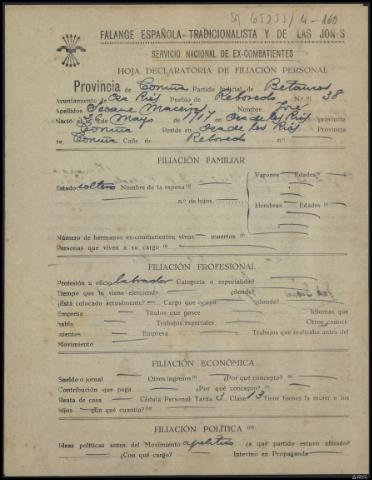 FALANGE ESPAÑOLA TRADICIONALISTA Y DE LAS JON-S
SERVICIO NACIONAL DE EX-COMBATIENTES
HOJA DECLARATORIA DE FILIACIÓN PERSONAL
Provincia de Coruña Partido Judicial de Betanzos
Ayuntamiento de Oza Ríos Pueblo de Reboredo N.º 38
Apellidos Seoane Maceiras Nombre José
Nació el de Mayo de 1917 en Oza de los Ríos provincia
Coruña Reside en Oza de los Ríos Provincia
de Coruña Calle de Reboredo n.º
FILIACIÓN FAMILIAR
Varones Edades
Estado soltero Nombre de la esposa
n.º de hijos
Hembras Edades
Número de hermanos ex-combatientes, vivos muertos
Personas que viven a su cargo
FILIACIÓN PROFESIONAL
Profesión u oficio labrador Categoría o especialidad
Tiempo que la viene ejerciendo ¿dónde?
¿Está colocado actualmente? Cargo que ocupa ¿dónde?
Empresa Títulos que posee Idiomas que
habla Trabajos especiales Otros conoci-
mientos Empresa Trabajos que realizaba antes del
Movimiento
FILIACIÓN ECONÓMICA
Sueldo o jornal Otros ingresos ¿Por qué concepto?
Contribución que paga ¿Por qué concepto?
Renta de casa Cédula Personal: Tarifa 3 Clase 13 Tiene bienes la mujer o los
hijos ¿En qué cuantía?
FILIACIÓN POLÍTICA
Ideas políticas antes del Movimiento apolítico ¿a qué partido estuvo afiliado?
¿Con qué cargo? Intervino en Propaganda